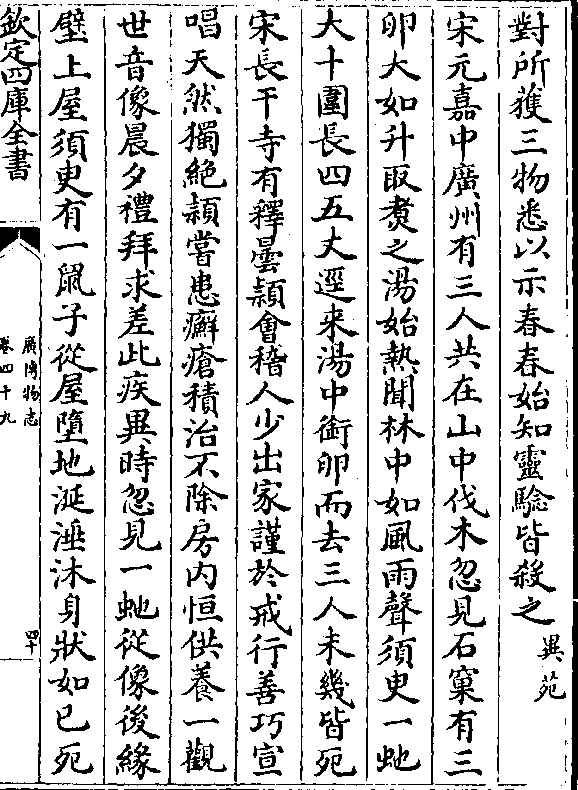 對所獲三物悉以示春春始知靈驗皆殺之異苑
宋元嘉中廣州有三人共在山中伐木忽見石窠有三
卵大如升取煑之湯始熱聞林中如風雨聲須臾一虵
大十圍長四五丈逕來湯中銜卵而去三人未幾皆死
宋長干寺有釋曇頴會稽人少出家謹於戒行善巧宣
唱天然獨絶頴嘗患癬瘡積治不除房内恒供養一觀
世音像晨夕禮拜求差此疾異時忽見一虵從像後緣
壁上屋須臾有一鼠子從屋墮地涎涶沐身狀如已死
欽定四庫全書
廣博物志
卷四十九
四十